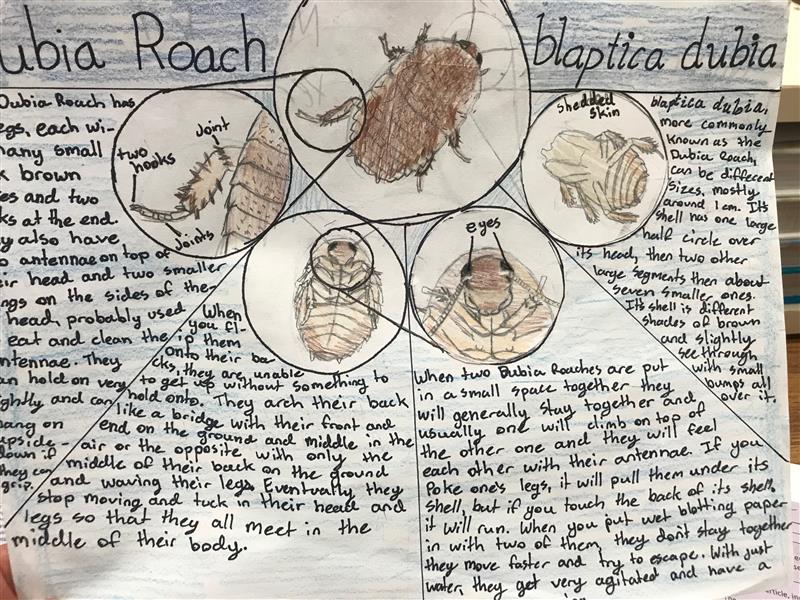 ubia Roach
blaptica dubia
Dubia Roach has
egs, each wi-
many small
k brown
es and two
ks at the end.
y also have
o antennae on top of
eir head and two smaller
ngs on the sides of the-
head, probably used
eat and clean the
ntennae. They
an hold on very
ightly and can
ang on
upside-
down if
they can
grip.
two hooks
Joint
Joints
When
you fl-
ip them
onto their ba-
cks, they are unable
to get up without something to
hold onto. They arch their back
like a bridge with their front and
end on the ground and middle in the
air or the opposite with only the
middle of their back on the ground
and waving their legs. Eventually they
stop moving and tuck in their head and
legs so that they all meet in the
middle of their body.
eyes
When two Dubia Roaches are put
in a small space together they
will generally stay together and
usually one will climb on top of
the other one and they will feel
each other with their antennae. If you
Poke one's legs, it will pull them under its
shell, but if you touch the back of its shell,
it will run. When you put wet blotting paper
in with two of them, they don't stay together
they move faster and try to escape. With just
water, they get very agitated and have a
shedded
skin
blaptica dubia,
more commonly
Known as the
Dubia Roach,
can be different
Sizes, mostly
around 1cm. It's
shell has one large
half circle over
its head, then two other
large segments then about
seven smaller ones.
It's shell is different
shades of brown
and slightly
see through
with small
bumps all
over it.